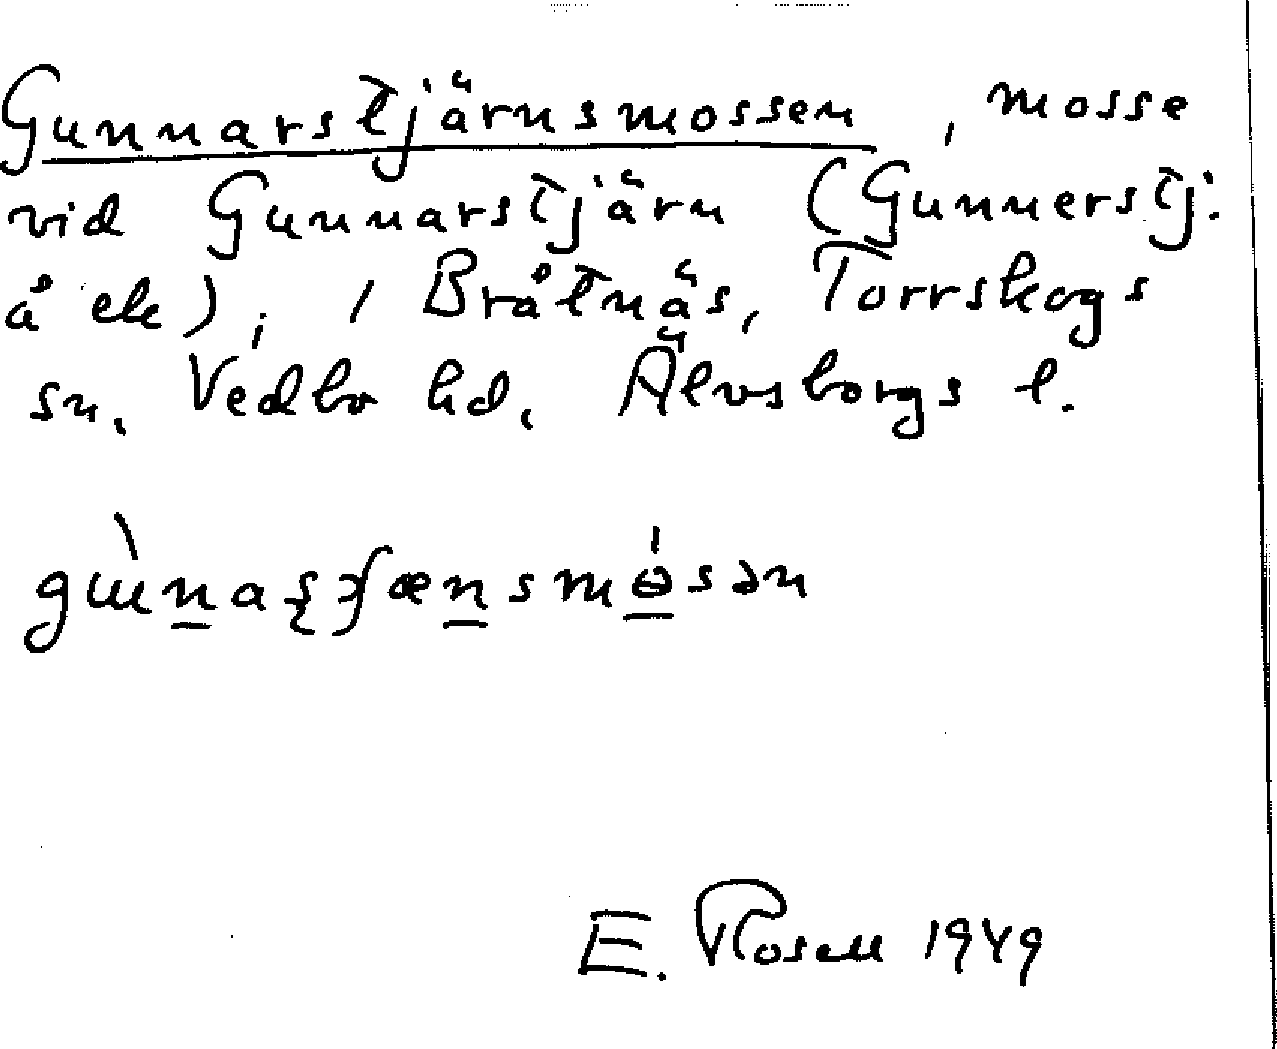 Gunnarstjärnsmossen, mosse
vid Gunnarstjärn (Gunnerstj:
å ek), i Bråtnäs, Torrskogs
sn. Vedbo hd. Älvsborgs l.
E. Rosell 1949